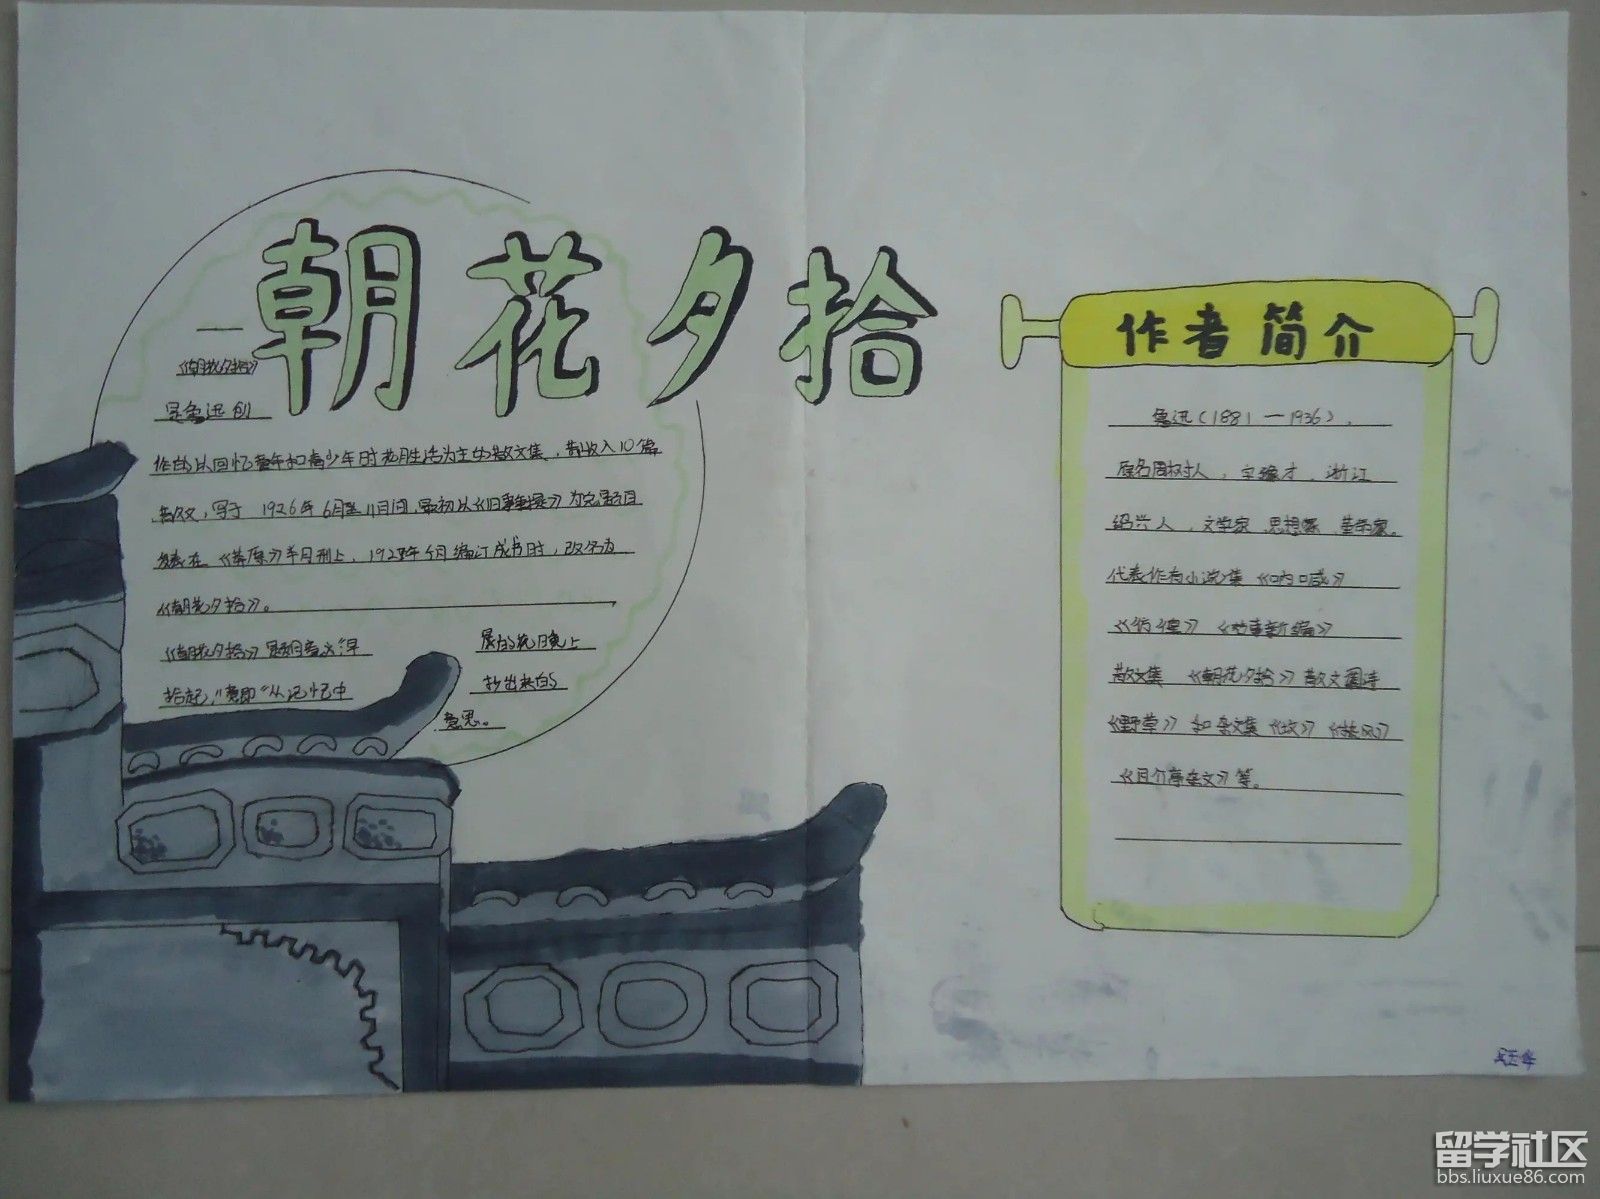 朝花夕拾
《朝花夕拾》
是鲁迅创
作的以回忆童年和青少年时期生活为主的散文集，共收入10篇
散文，写于 1926年6月至11月间，最初以《旧事重提》为总题目
发表在《莽原》半月刊上，1927年5月编订成书时，改名为
《朝花夕拾》。
《朝花夕拾》题目意义：早晨的花晚上
拾起，"意即"从记忆中抄出来的
意思。
作者简介
鲁迅(1881—1936)，
原名周树人，字豫才，浙江
绍兴人，文学家 思想家 革命家。
代表作有小说集《呐喊》
《彷徨》《故事新编》
散文集 《朝花夕拾》散文诗
《野草》和杂文集《坟》《热风》
《且介亭杂文》等。
留学社区
bbs.liuxue86.com